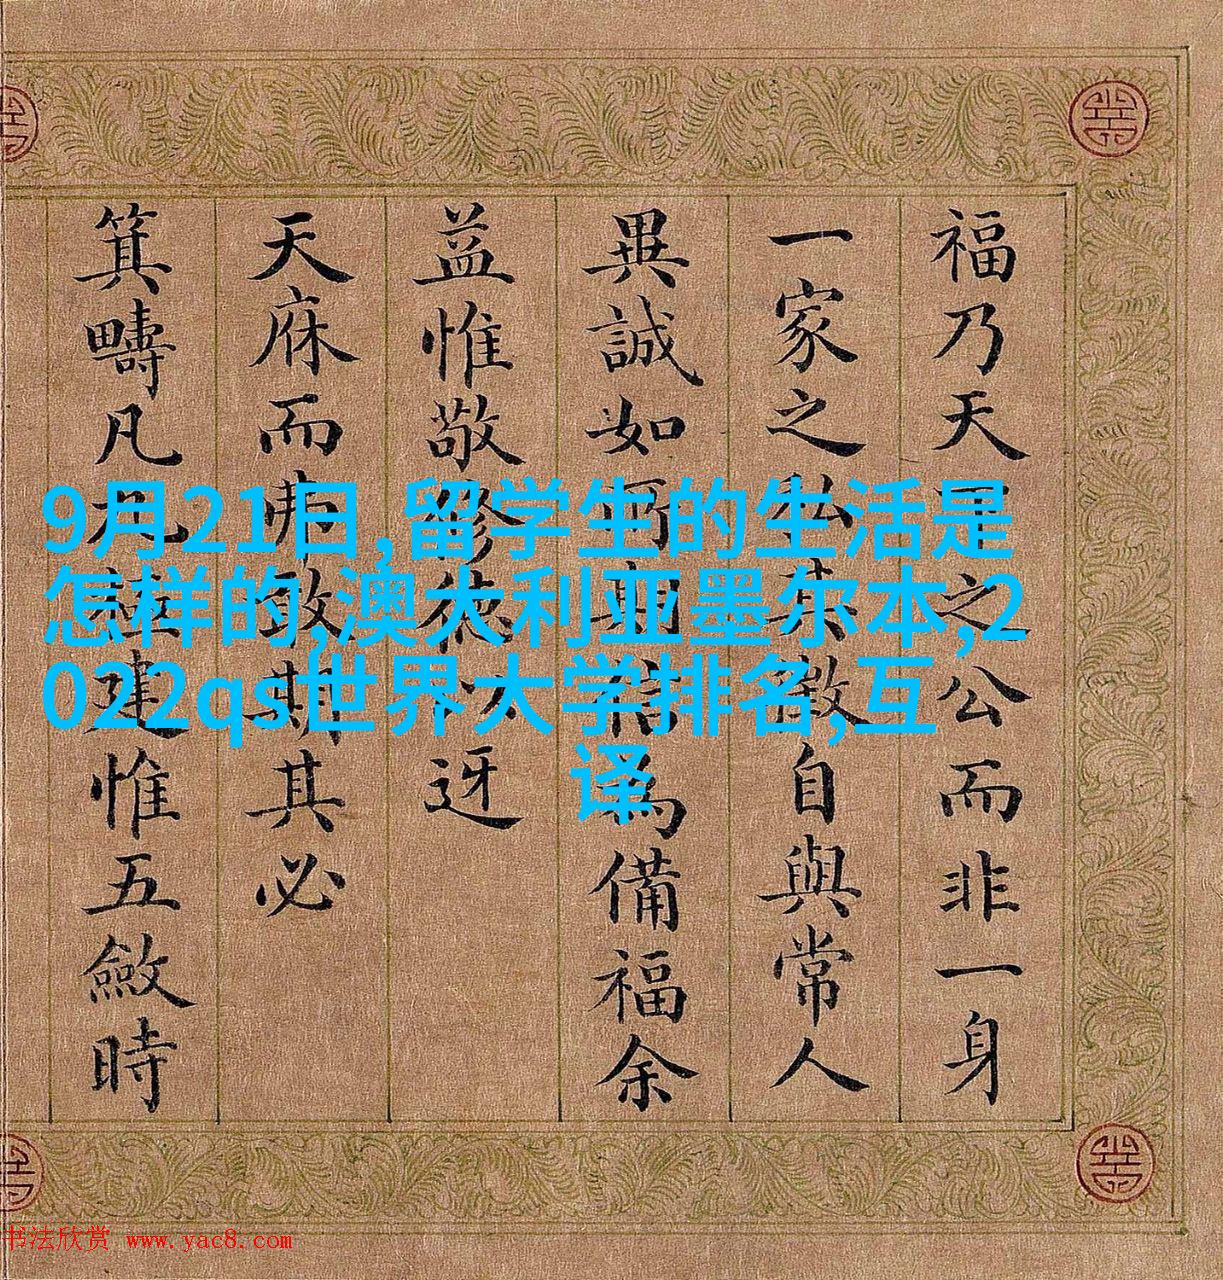 福乃天之公而非一身
一家之私其敢自與常人
異誠如所期信為備福余
益惟敬修德以迓
天庥而弗敢期其必
箕疇凡九建惟五斂時
9月21日,留学生的生活是
怎样的,澳大利亚墨尔本,2
022qs世界大学排名,互
译
书法欣赏 www.yac8.com